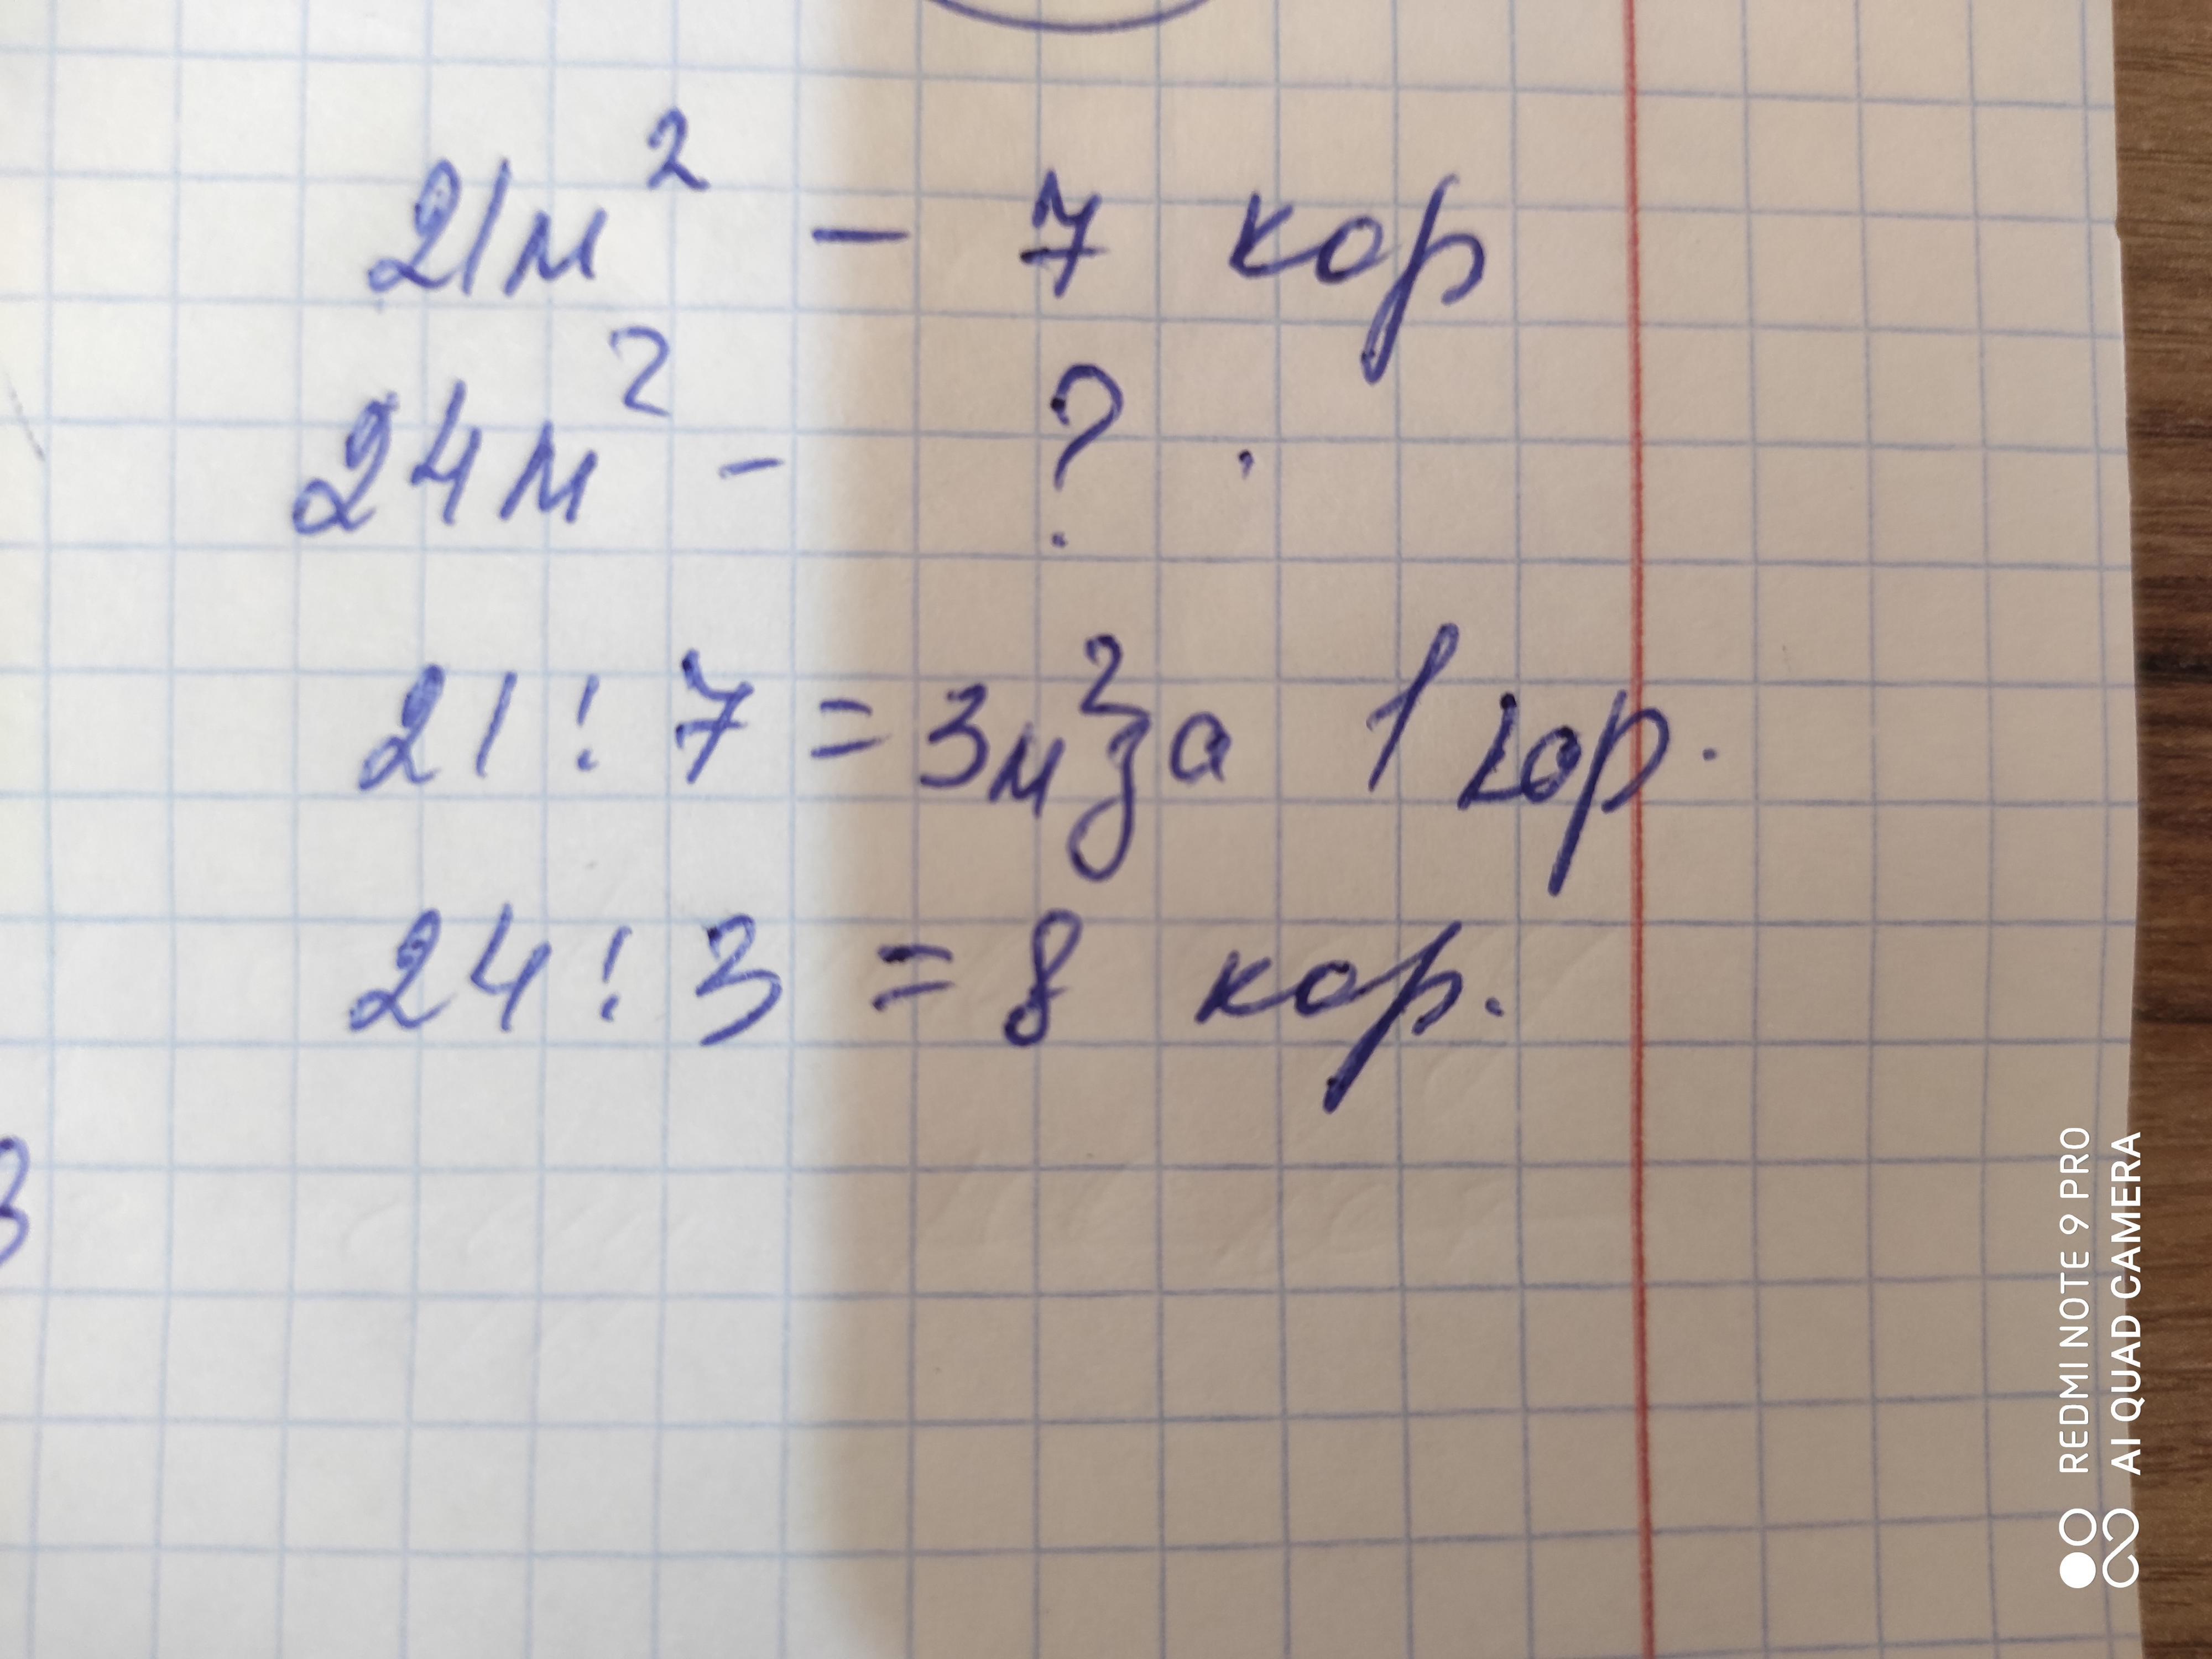 21м² - 7 кор
24м² - ?
21 : 7 = 3м² за 1 кор.
24 : 3 = 8 кор.
3
REDMI NOTE 9 PRO
AI QUAD CAMERA